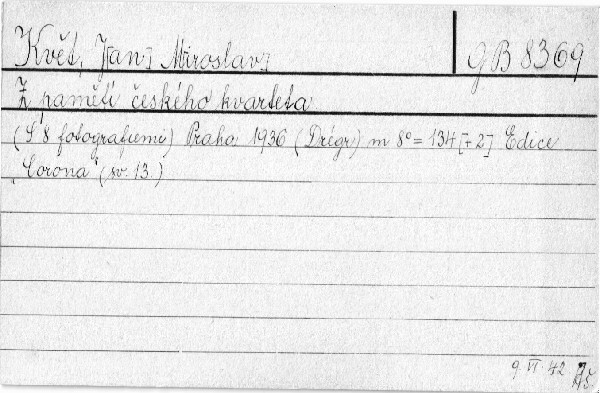 Květ, J[an] Miroslav] GB 8369
Z pamětí českého kvarteta
(S 8 fotografiemi) Praha: 1936 (Drégr) m 8° = 134 [+2] Edice
"Corona" (sv. 13.)
9 VI 42